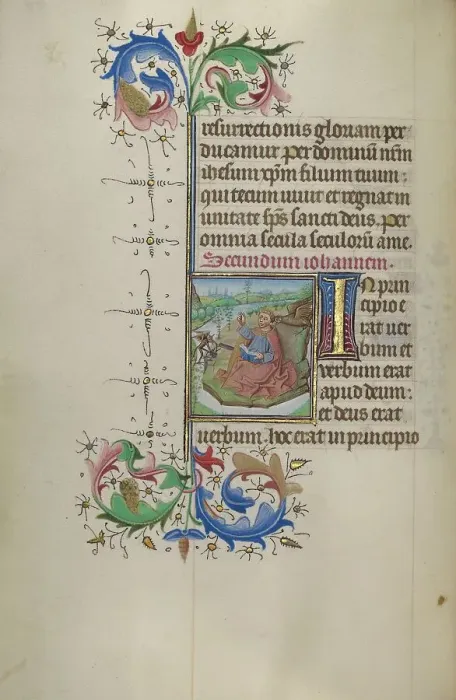 resurrectionis gloriam per
ducamur. per dominū nr̄m
ihesum xp̄m filium tuum:
qui tecum uiuit et regnat in
unitate sp̄s sancti deus. per
omnia secula seculorū ame.
Secundum iohannem.
In prin
cipio e
rat uer
bum et
verbum erat
apud deum:
et deus erat
uerbum. hoc erat in principio